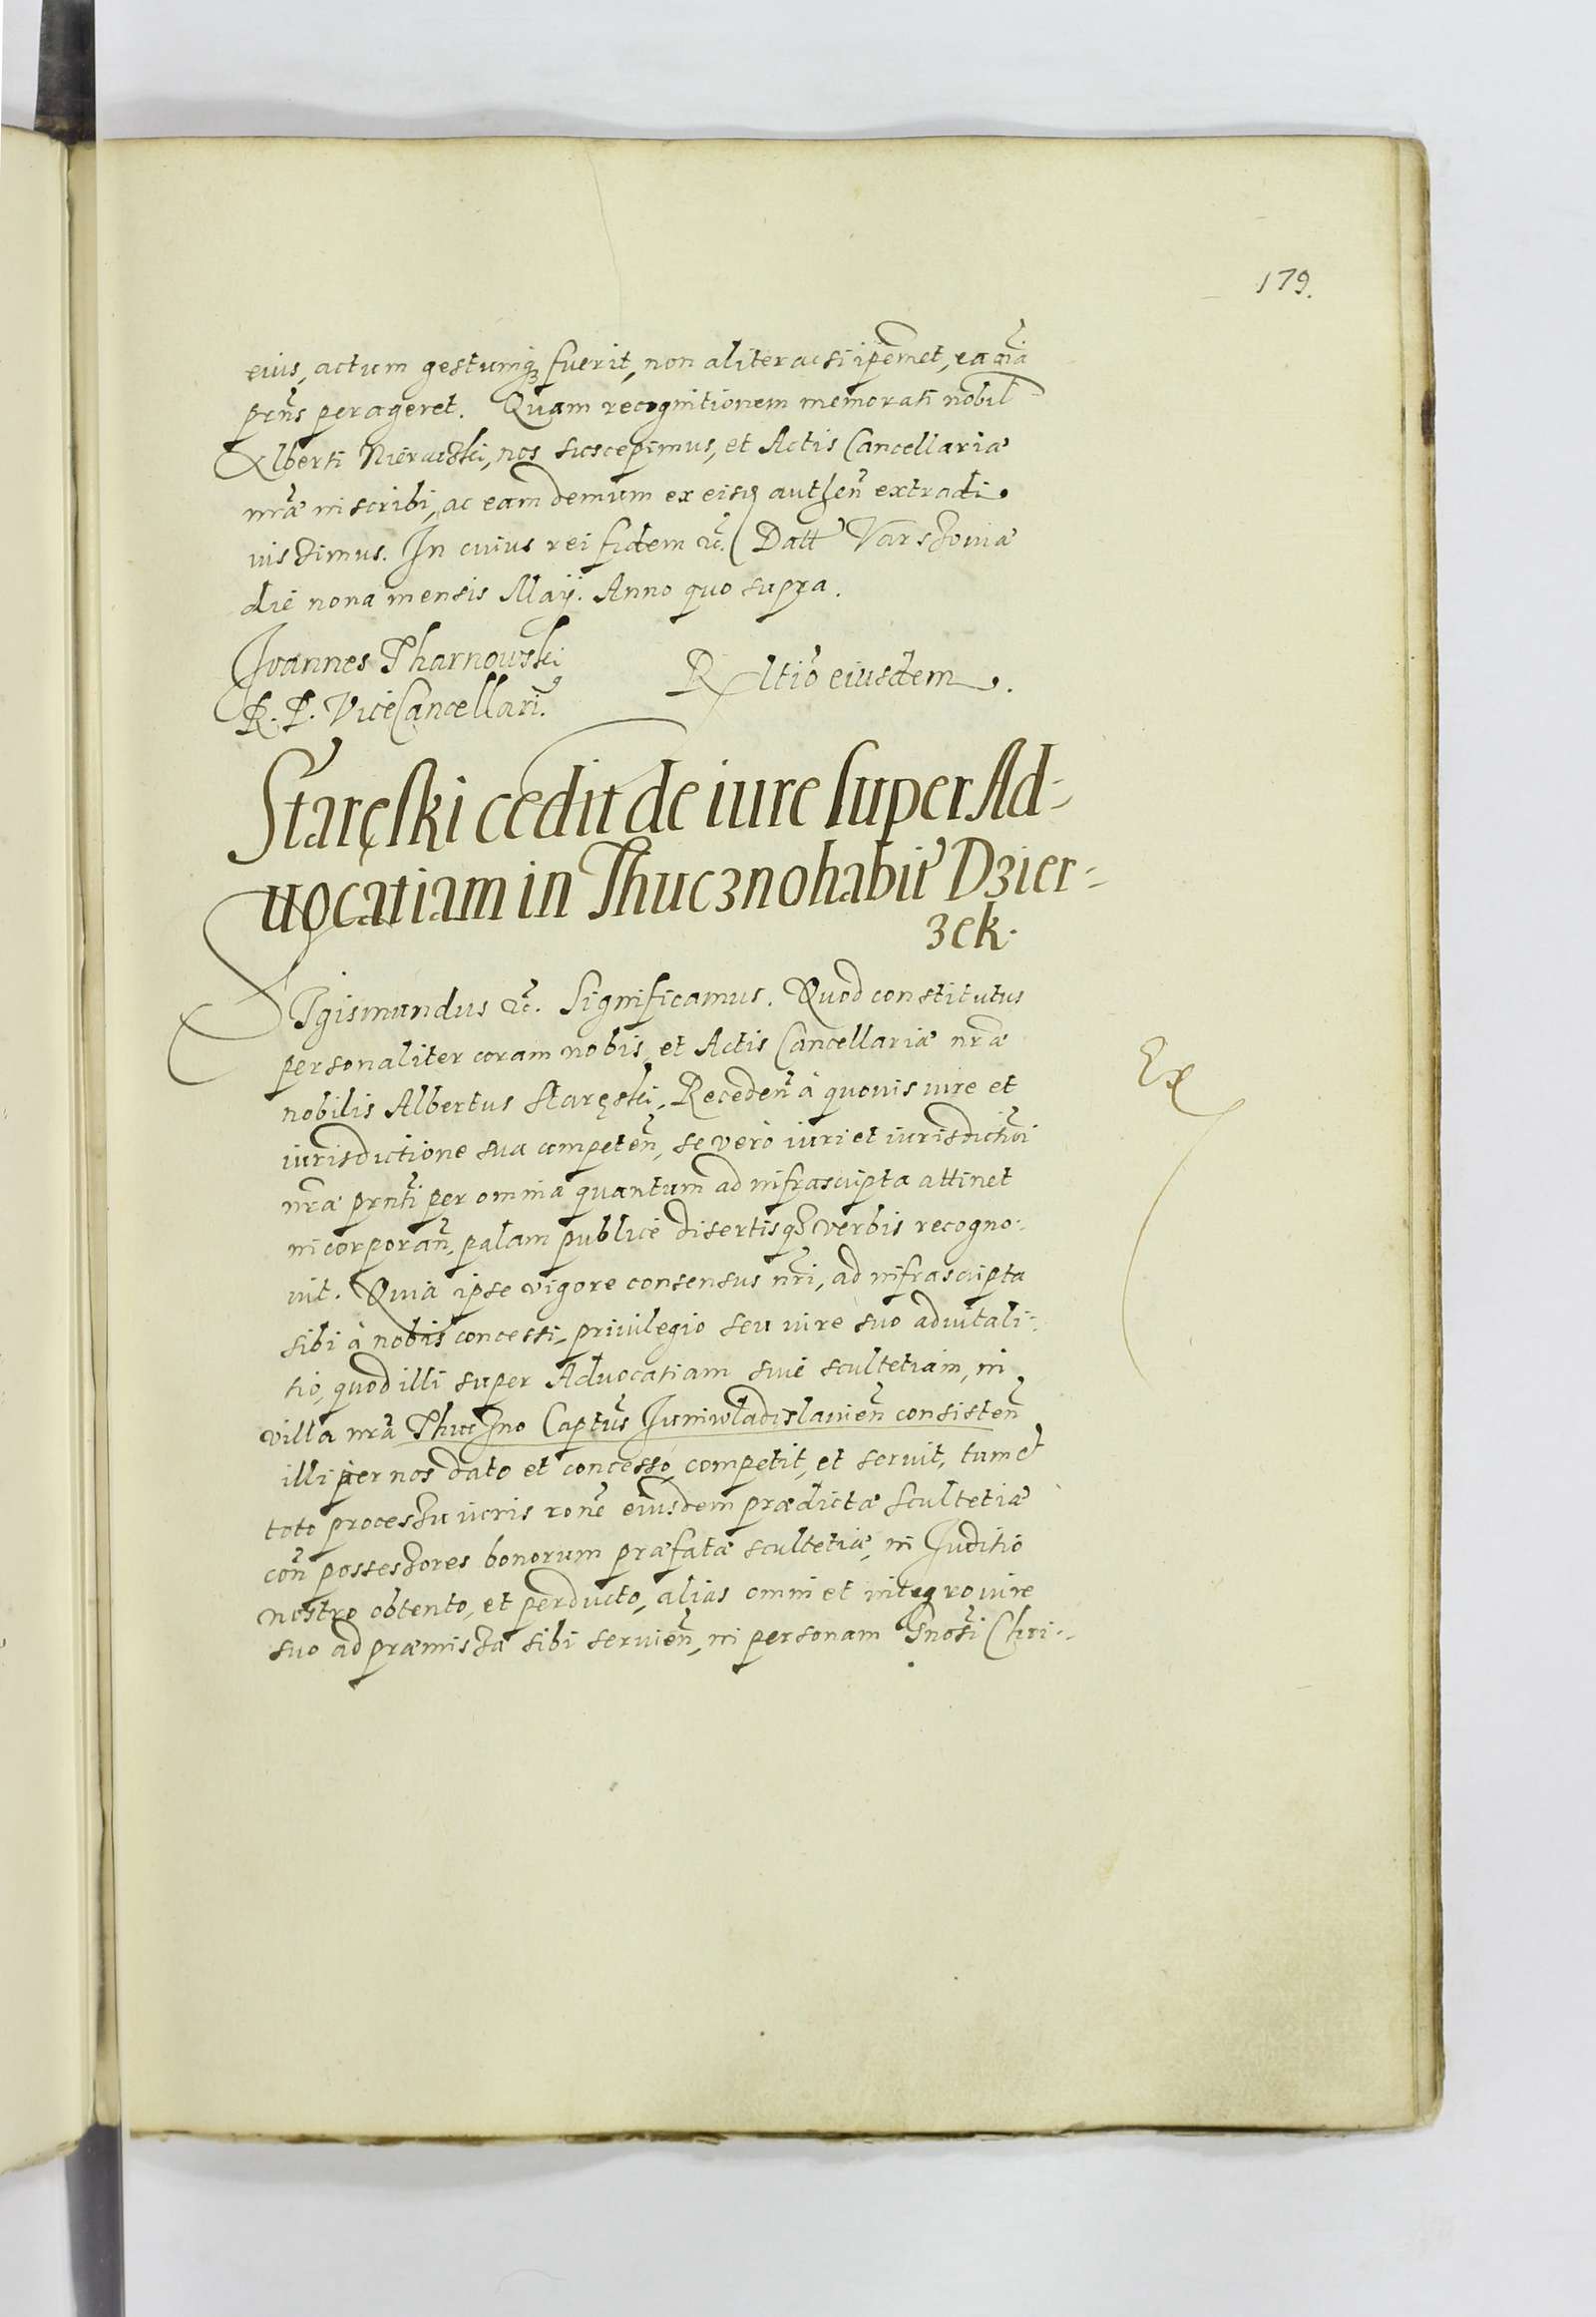 179.
eius, actum gestumq₃ fuerit, non aliter ac si ipēmet, ea oīa
prñs perageret. Quam recognitionem memorati nobil
Alberti Nieruszki, nos suscepimus, et Actis Cancellariæ
nr̃æ inscribi, ac eam demum ex eisd authen̄ extradi
iussimus. In cuius rei fidem &c̃. Datt Varssoviæ
die nona mensis Maij. Anno quo supra.
Joannes Tharnowski
R. P. ViceCancellari⁹.
Rltio eiusdem.
Staręski cedit de iure super Ad-
vocatiam in Thuczno habit Dzier-
zek.
SIgismundus &c̃. Significamus. Quod constitutus
personaliter coram nobis, et Actis Cancellariæ nr̃æ
nobilis Albertus Staręski, Receden̄ à quovis iure et
iurisdictione sua competen̄, se vero iuri et iurisdictioi
nr̃æ prñti per omnia quantum ad infrascripta attinet
incorporan̄, palam publice disertisq₃ verbis recogno-
vit. Quia ipse vigore consensus nr̃i, ad infrascripta
sibi à nobis concessi, privilegio seu iure suo advitali-
tio, quod illi super Advocatiam sive scultetiam, in
villa nr̃a Thuczno Captus̃ Juniwladislavien̄ consisten̄
illi per nos dato et concesso, competit, et servit, tum et
toto processu iuris rone eiusdem prædictæ Scultetiæ
con̄ possessores bonorum præfatæ scultetiæ, in Juditio
nostro obtento, et perducto, alias omni et integro iure
suo ad præmissa sibi servien̄, in personam Gnosi Chri-
Ex